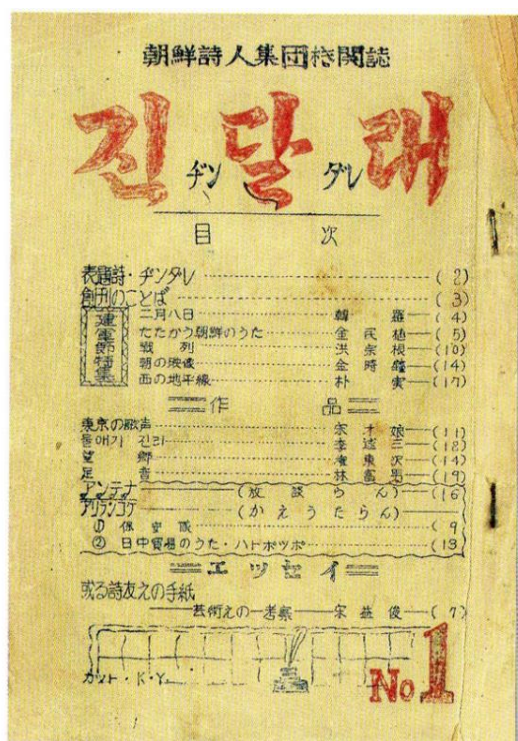 朝鮮詩人集団機関誌
진달래
ヂンダレ
目次
表題詩・ヂンダレ (2)
創刊のことば (3)
建軍節特集
二月八日 韓羅 (4)
たたかう朝鮮のうた 金民植 (5)
戦列 洪宗根 (10)
朝の映像 金時鐘 (14)
西の地平線 朴実 (17)
作品
東京の歌声 宋才娘 (11)
돌애기 진리 李述三 (12)
望郷 権東沢 (14)
足音 林富男 (19)
アンテナ (放談らん) (16)
アリランコケ (かえうたらん)
① 保安隊 9
② 日中貿易のうた・ハトポッポ (13)
エッセイ
或る詩友えの手紙
芸術えの一考察 宋益俊 (7)
カット・K・Y
No 1